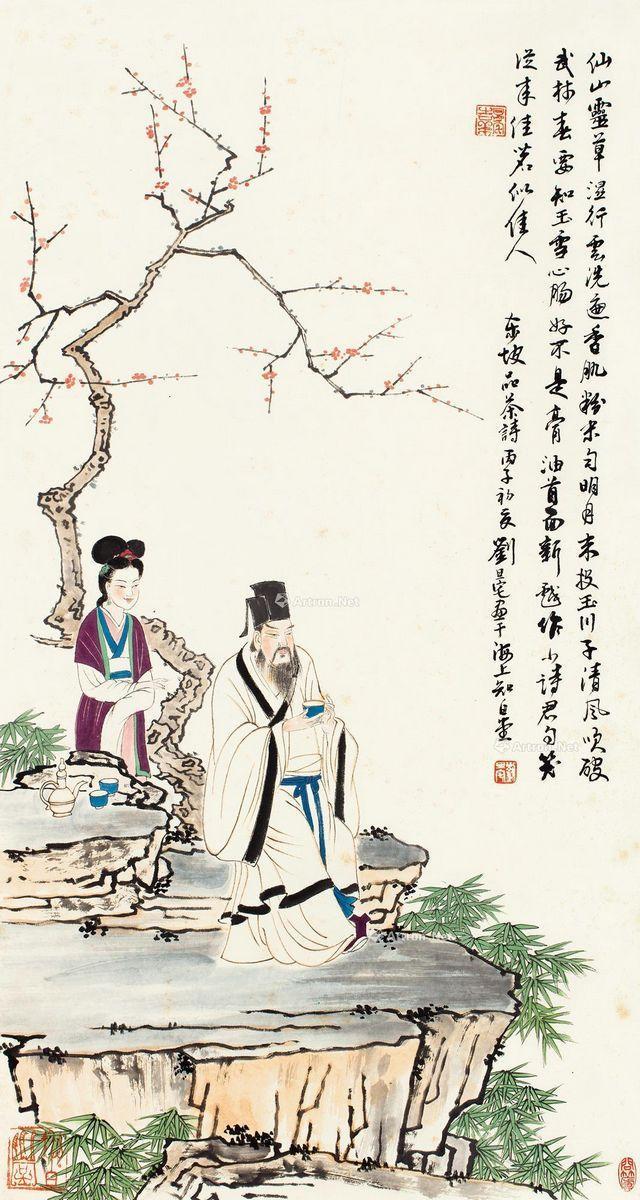 仙山靈草湿行雲洗遍香肌粉未匀明月来投玉川子清風吹破
武林春要知玉雪心肠好不是膏油首面新戲作小詩君勿笑
従来佳茗似佳人
东坡品茶詩丙子初夏劉旦宅画于海上知白堂
Artron.Net
Artron.Net